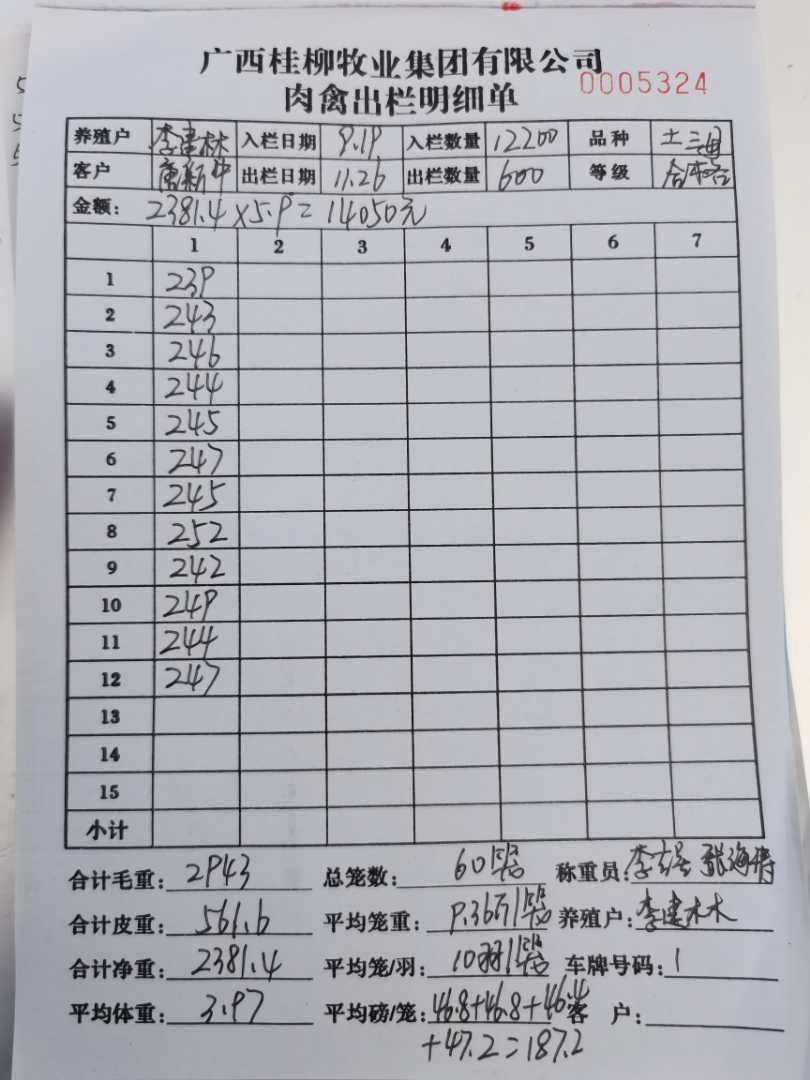 广西桂柳牧业集团有限公司
肉禽出栏明细单 0005324
养殖户 李建林 入栏日期 9.19 入栏数量 12200 品种 土三
客户 出栏日期 11.26 出栏数量 600 等级 合格
金额: 2381.4×5.9=14050元
1 2 3 4 5 6 7
1 239
2 243
3 246
4 244
5 245
6 247
7 245
8 252
9 242
10 249
11 244
12 247
13
14
15
小计
合计毛重: 2943 总笼数: 60 称重员: 李 张海
合计皮重: 561.6 平均笼重: 9.36斤/ 养殖户: 李建林
合计净重: 2381.4 平均笼/羽: 10羽/ 车牌号码: 1
平均体重: 3.97 平均磅/笼: 46.8+46.8+46.4 客 户:
+47.2=187.2